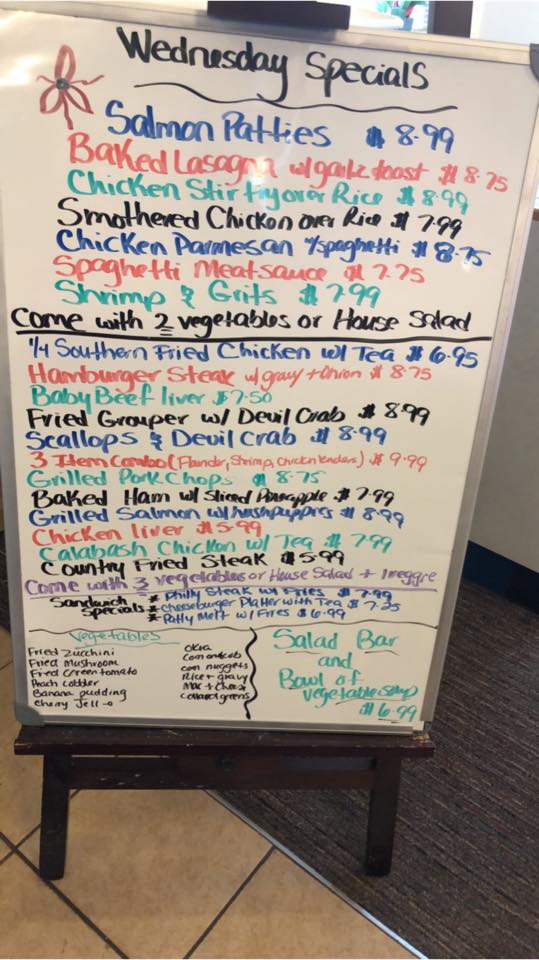 Wednesday Specials
Salmon Patties $ 8.99
Baked Lasagna w/garlic toast $ 8.75
Chicken Stir fry over Rice $ 8.99
Smothered Chicken over Rice $ 7.99
Chicken Parmesan w/spaghetti $ 8.75
Spaghetti Meatsauce $ 7.75
Shrimp & Grits $ 7.99
Come with 2 vegetables or House Salad
1/4 Southern Fried Chicken w/ Tea $ 6.95
Hamburger Steak w/ gravy + Onion $ 8.75
Baby Beef liver $7.50
Fried Grouper w/ Devil Crab $ 8.99
Scallops & Devil Crab $ 8.99
3 Item Combo (Flounder, Shrimp, Chicken tenders) $ 9.99
Grilled Pork Chops $ 8.75
Baked Ham w/ Sliced Pineapple $ 7.99
Grilled Salmon w/ hushpuppies $ 8.99
Chicken liver $5.99
Calabash Chicken w/ Tea $ 7.99
Country Fried Steak $5.99
Come with 3 vegetables or House Salad + 1 veggie
Sandwich Specials
* Philly Steak w/ Fries $ 7.99
* Cheeseburger Platter with Tea $ 7.25
* Patty Melt w/ Fries $ 6.99
Vegetables
Fried Zucchini
Fried Mushroom
Fried Green tomato
Peach Cobbler
Banana pudding
Cherry Jell-o
Okra
Corn on cob
corn nuggets
Rice + gravy
Mac + Cheese
Collard greens
Salad Bar
and
Bowl of
vegetable Soup
$ 6.99